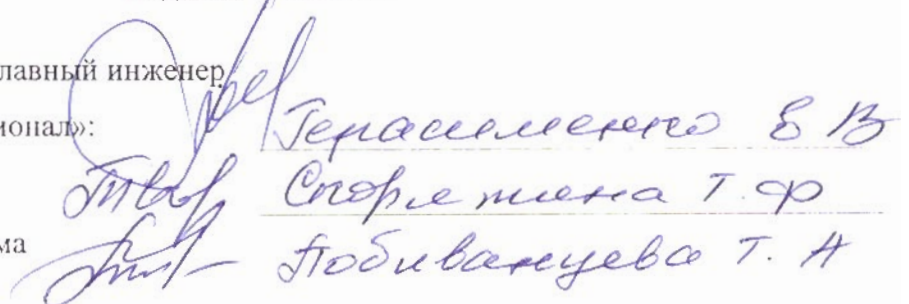 лавный инженер
ионал»: Герасименко Е В
Т. Ф
ма Побиванцева Т. А